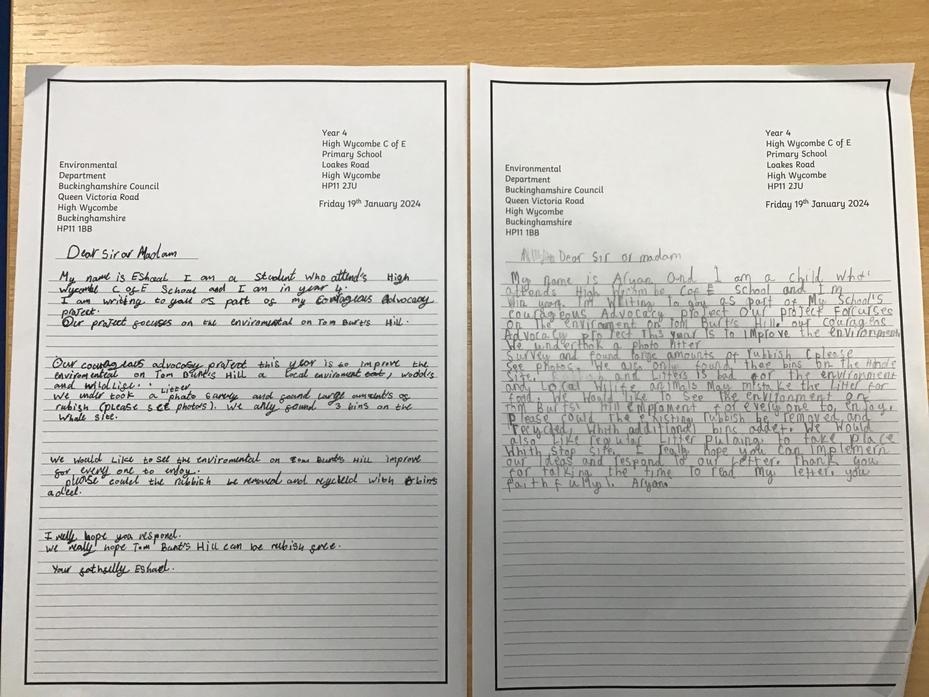 Year 4
High Wycombe C of E
Primary School
Loakes Road
High Wycombe
HP11 2JU
Friday 19th January 2024
Environmental
Department
Buckinghamshire Council
Queen Victoria Road
High Wycombe
Buckinghamshire
HP11 1BB
Dear Sir or Madam
My name is Eshaal I am a Student who attend's High
Wycombe C of E School and I am in year 4.
I am writing to you as part of my Advocacy
project.
Our project focuses on the enviromental on Tom Burt's Hill.
Our advocacy project this year is to improve the
enviromental on Tom Hill a local enviroment
and wildlise.
litter
We under took a photo survey and found large amount's of
rubish (please see photos). We only found 3 bins on the
whole site.
We would Like to see the enviromental on Tom Burt's Hill improve
for every one to enjoy.
please could the rubbish be removed and recycled with bins
I really hope you respond.
We really hope Tom Burt's Hill can be rubish free.
Your Eshaal.
Year 4
High Wycombe C of E
Primary School
Loakes Road
High Wycombe
HP11 2JU
Friday 19th January 2024
Environmental
Department
Buckinghamshire Council
Queen Victoria Road
High Wycombe
Buckinghamshire
HP11 1BB
Dear Sir or madam
My name is Aryan And I am a child
attends High Wycombe C of E School and I'm
I'm writing to you as part of My School's
courageous Advocacy project Our project Forcurses
on the enviroment on Tom Burt's Hill. our
Advocacy project This year is to improve the
We a photo litter
Survey and found large amounts of rubbish (please
see photos. We also only found bins on the
Site. and litters is bad for the environment
and Local animals May mistake the litter for
food. We would like to see the environment on
Tom Burts' Hill for every one to enjoy.
Please could the existing rubbish be removed and
recycled, whith additional bins We would
also Like regular Litter to take place
I really hope you can
our ideas and respond to our letter. Thank you
for the time to read My letter. you
Aryan.